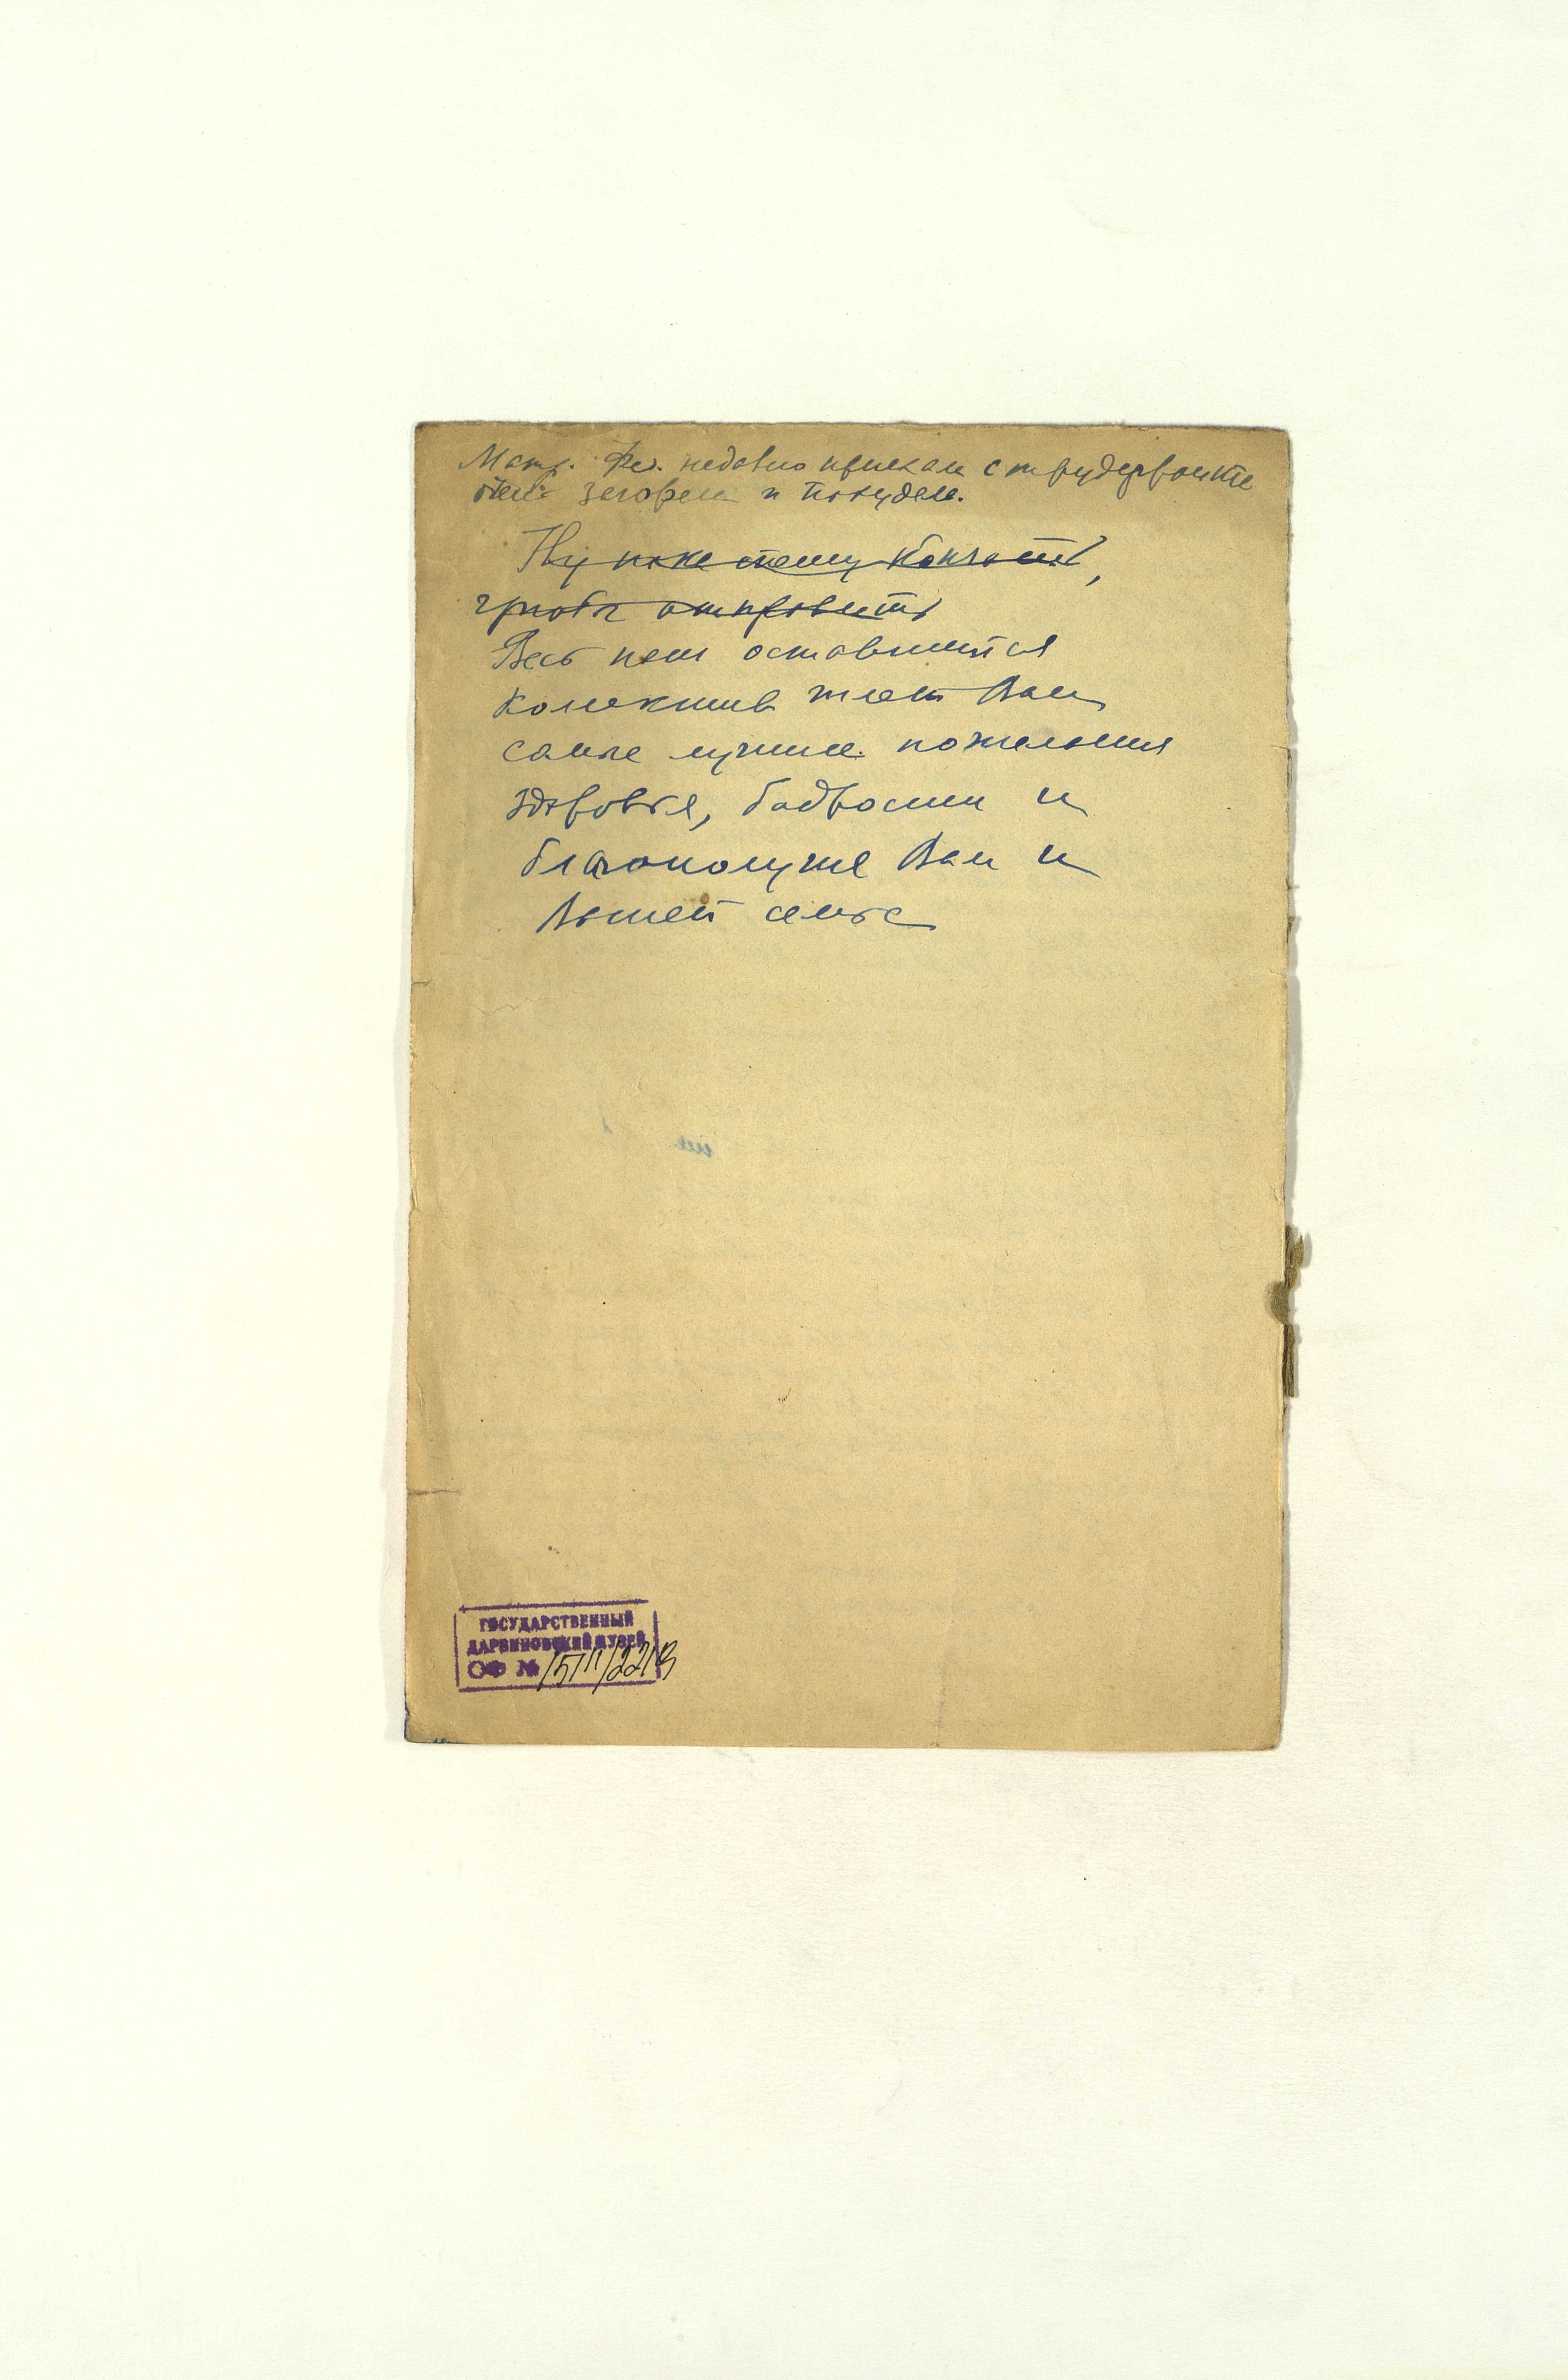 Матр. Фед. недавно приехала с трудфронта
очень загорела и похудела.
Ну пока стану кончать,
чтобы отправить
Весь наш оставшийся
коллектив шлет Вам
самые лучшие пожелания
здоровья, бодрости и
благополучия Вам и
Вашей семье
ГОСУДАРСТВЕННЫЙ
ДАРВИНОВСКИЙ МУЗЕЙ
ОФ №